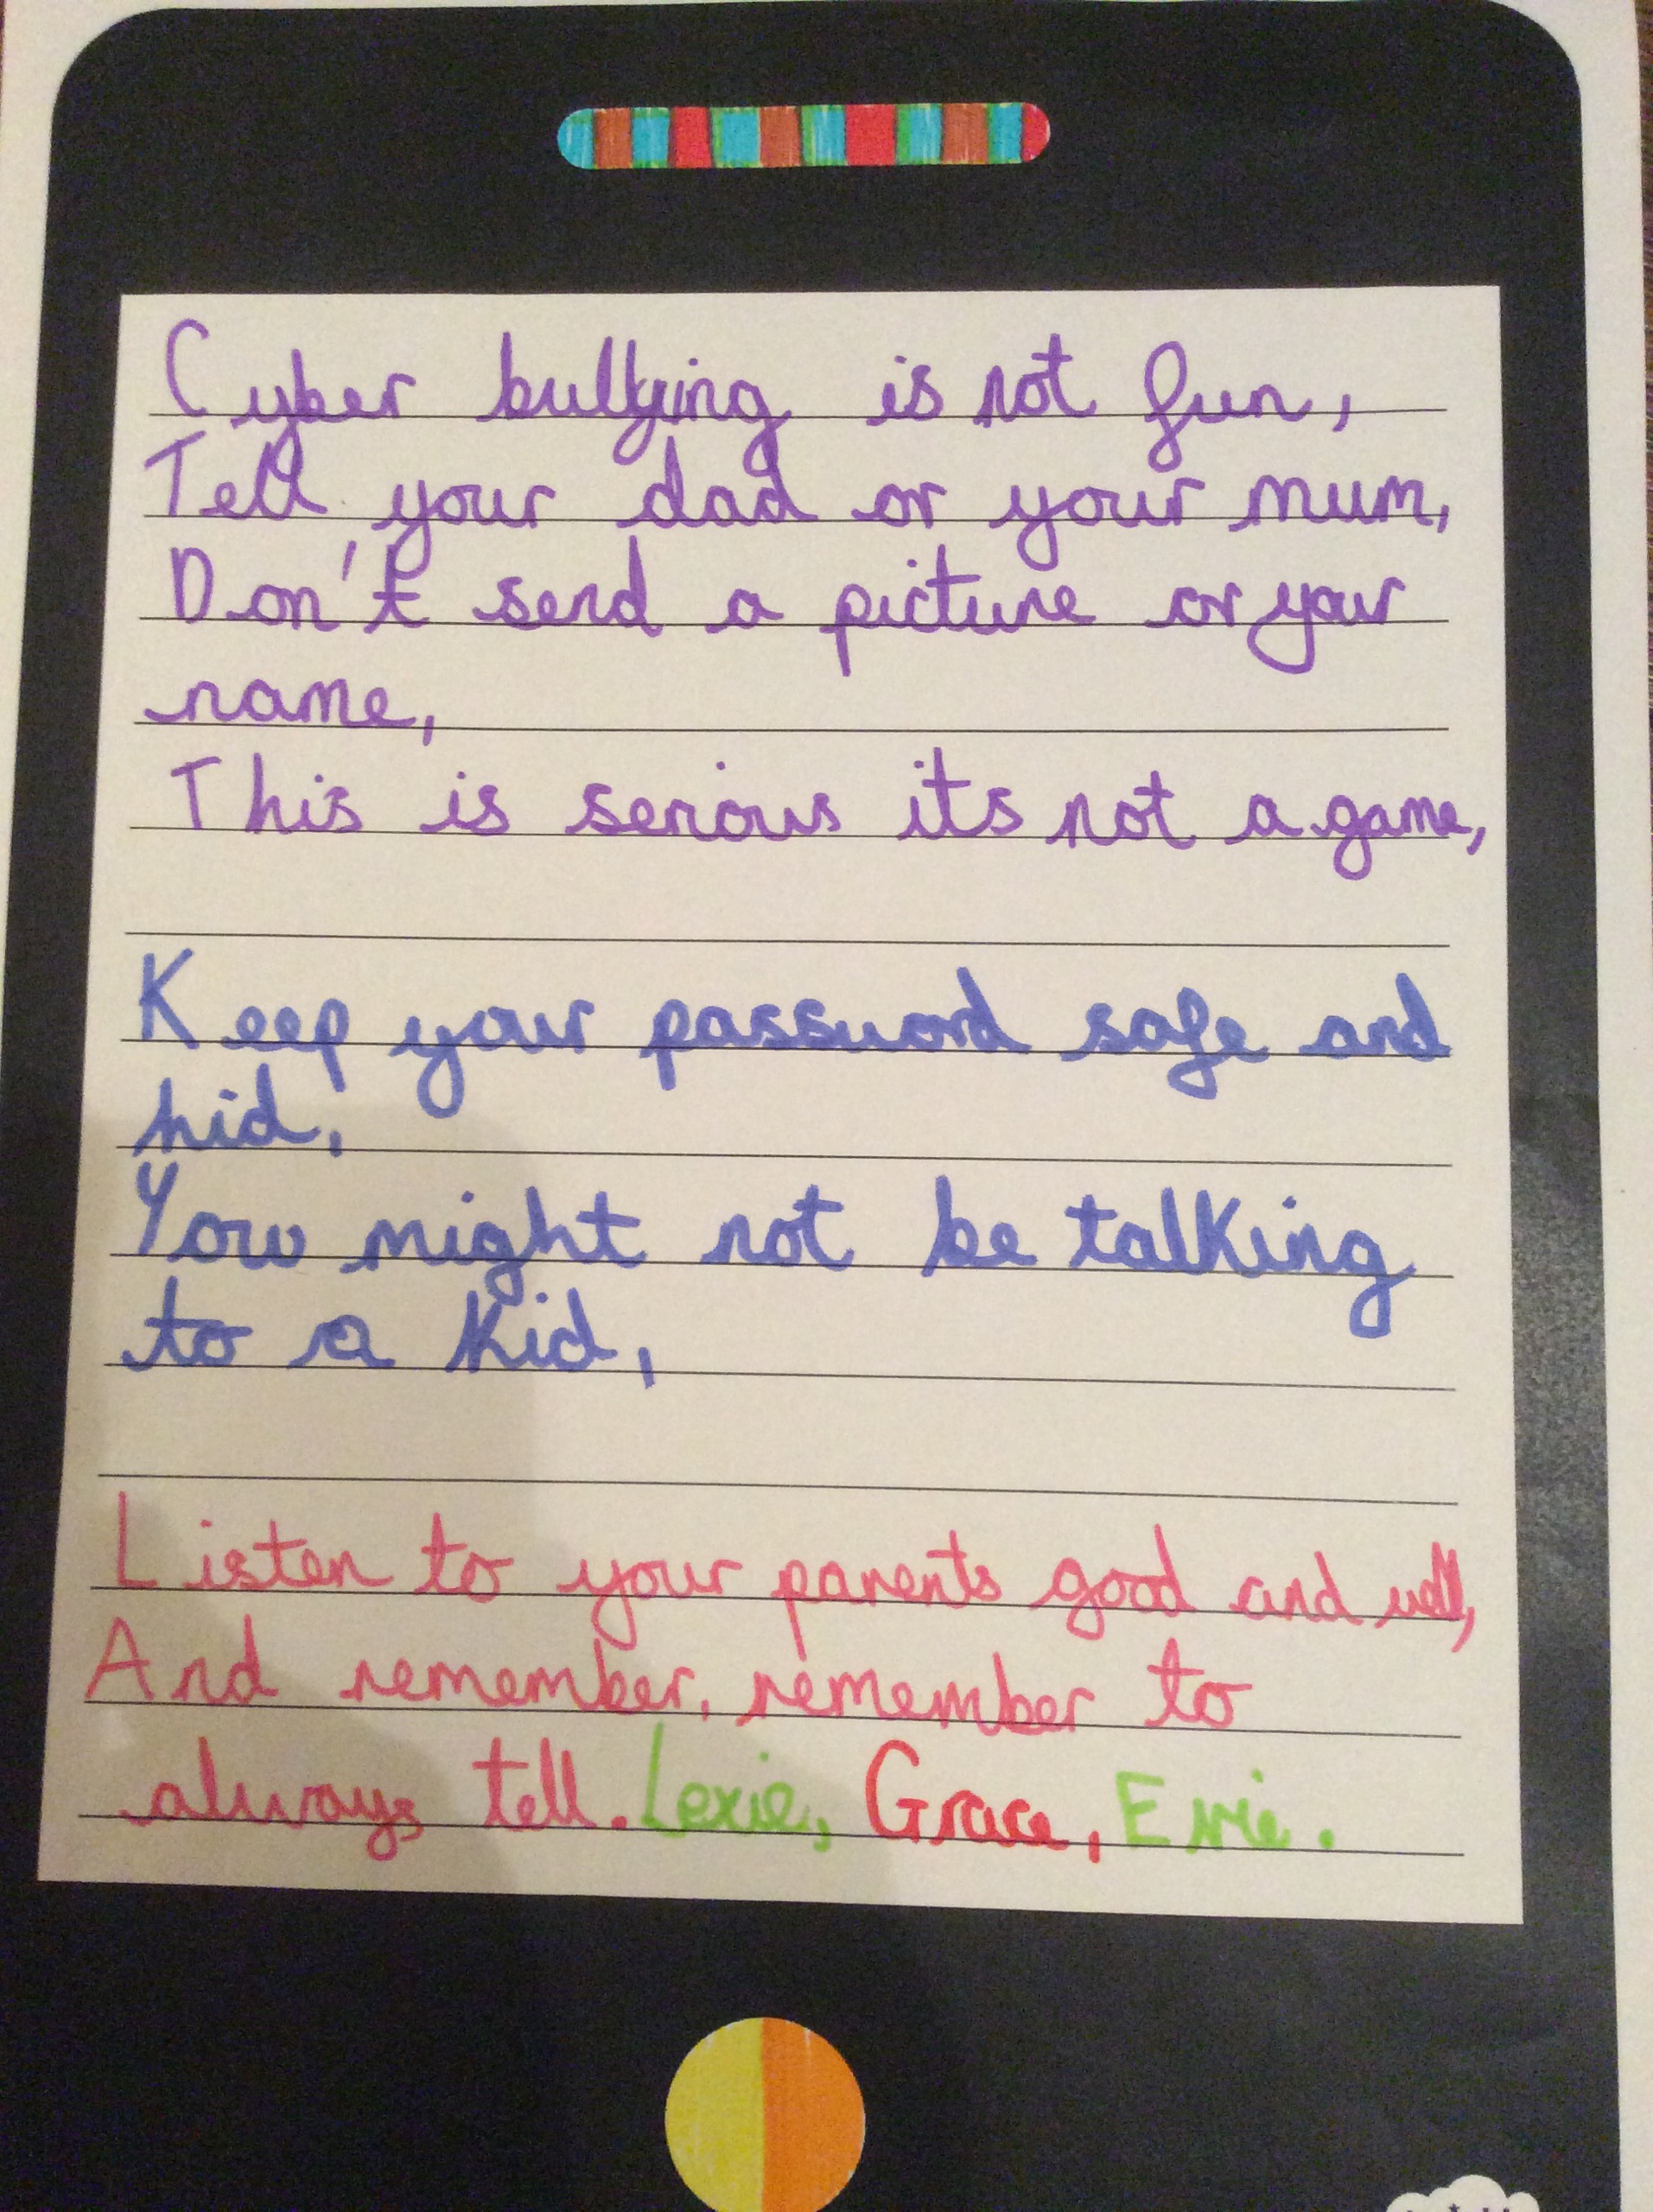 Cyber bullying is not fun,
Tell your dad or your mum,
Don't send a picture or your
name,
This is serious its not a game,
Keep your password safe and
hid,
You might not be talking
to a kid,
Listen to your parents good and well,
And remember, remember to
always tell. Lexie, Grace, Evie.